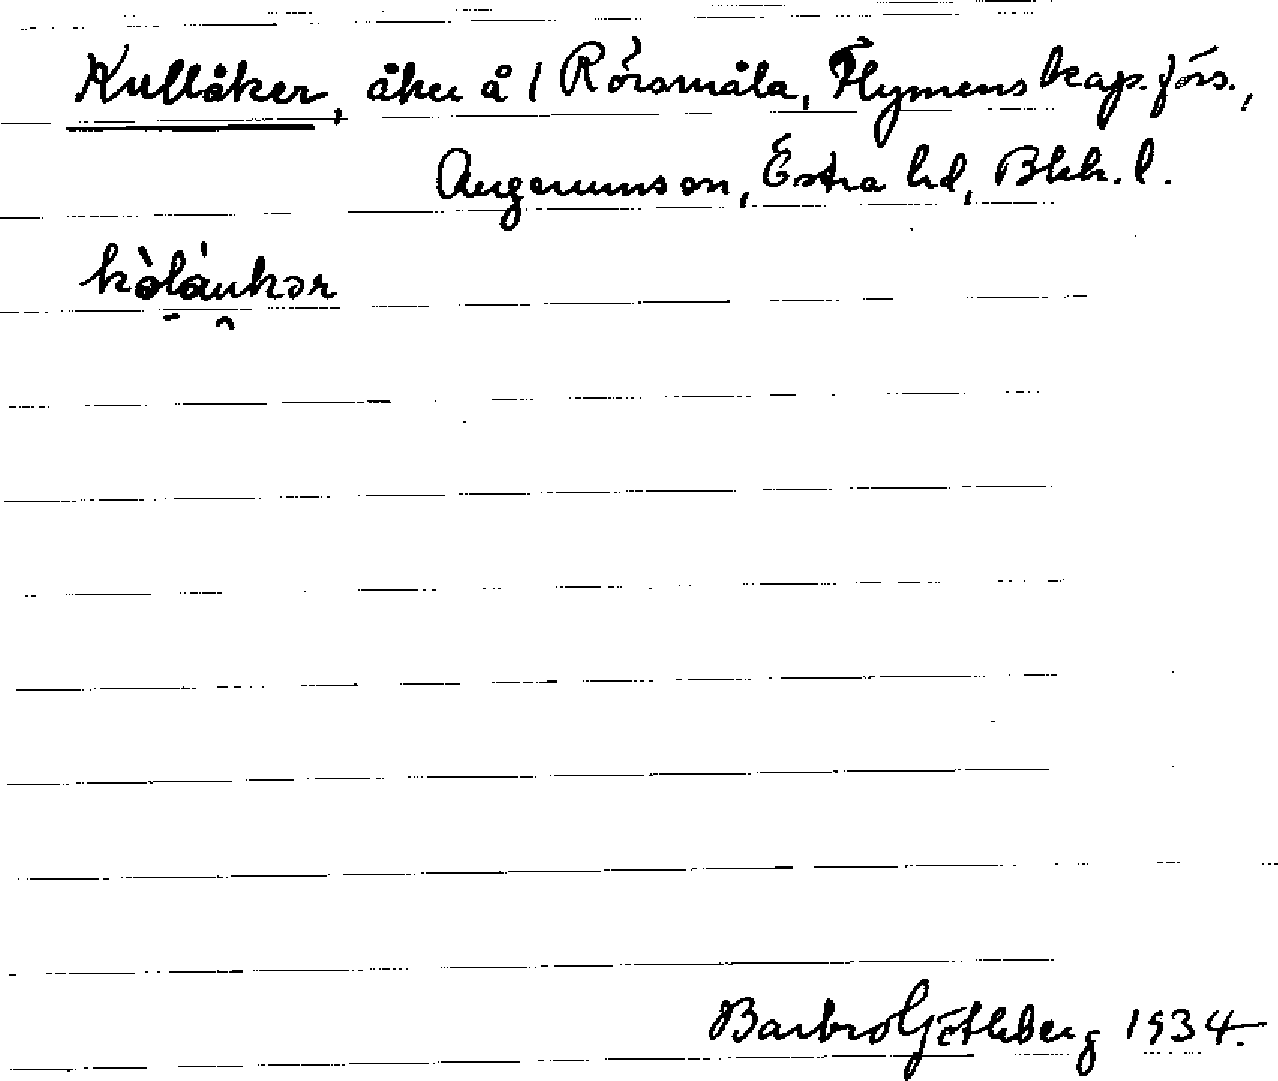 Kullåker, åker å 1 Rörsmåla, Flymens kap. förs.,
Augerums sn, Östra hd, Blek. l.
kòláukər
Barbro Götleberg 1934.